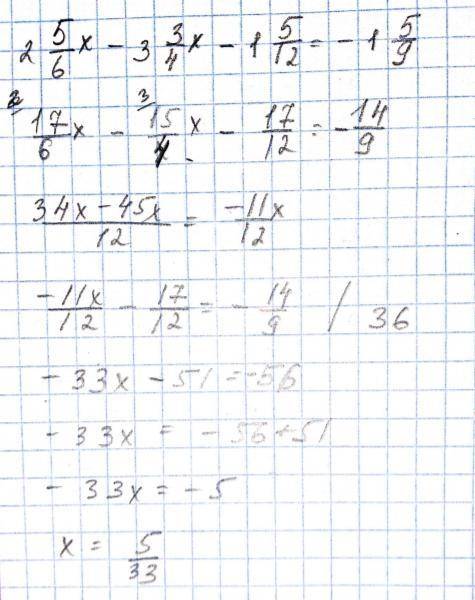 2 5/6 x - 3 3/4 x - 1 5/12 = - 1 5/9
2 17/6 x - 3 15/4 x - 17/12 = - 14/9
34x - 45x / 12 = -11x / 12
-11x / 12 - 17/12 = - 14/9 / 36
- 33x - 51 = -56
- 33x = - 56 + 51
- 33x = - 5
x = 5/33